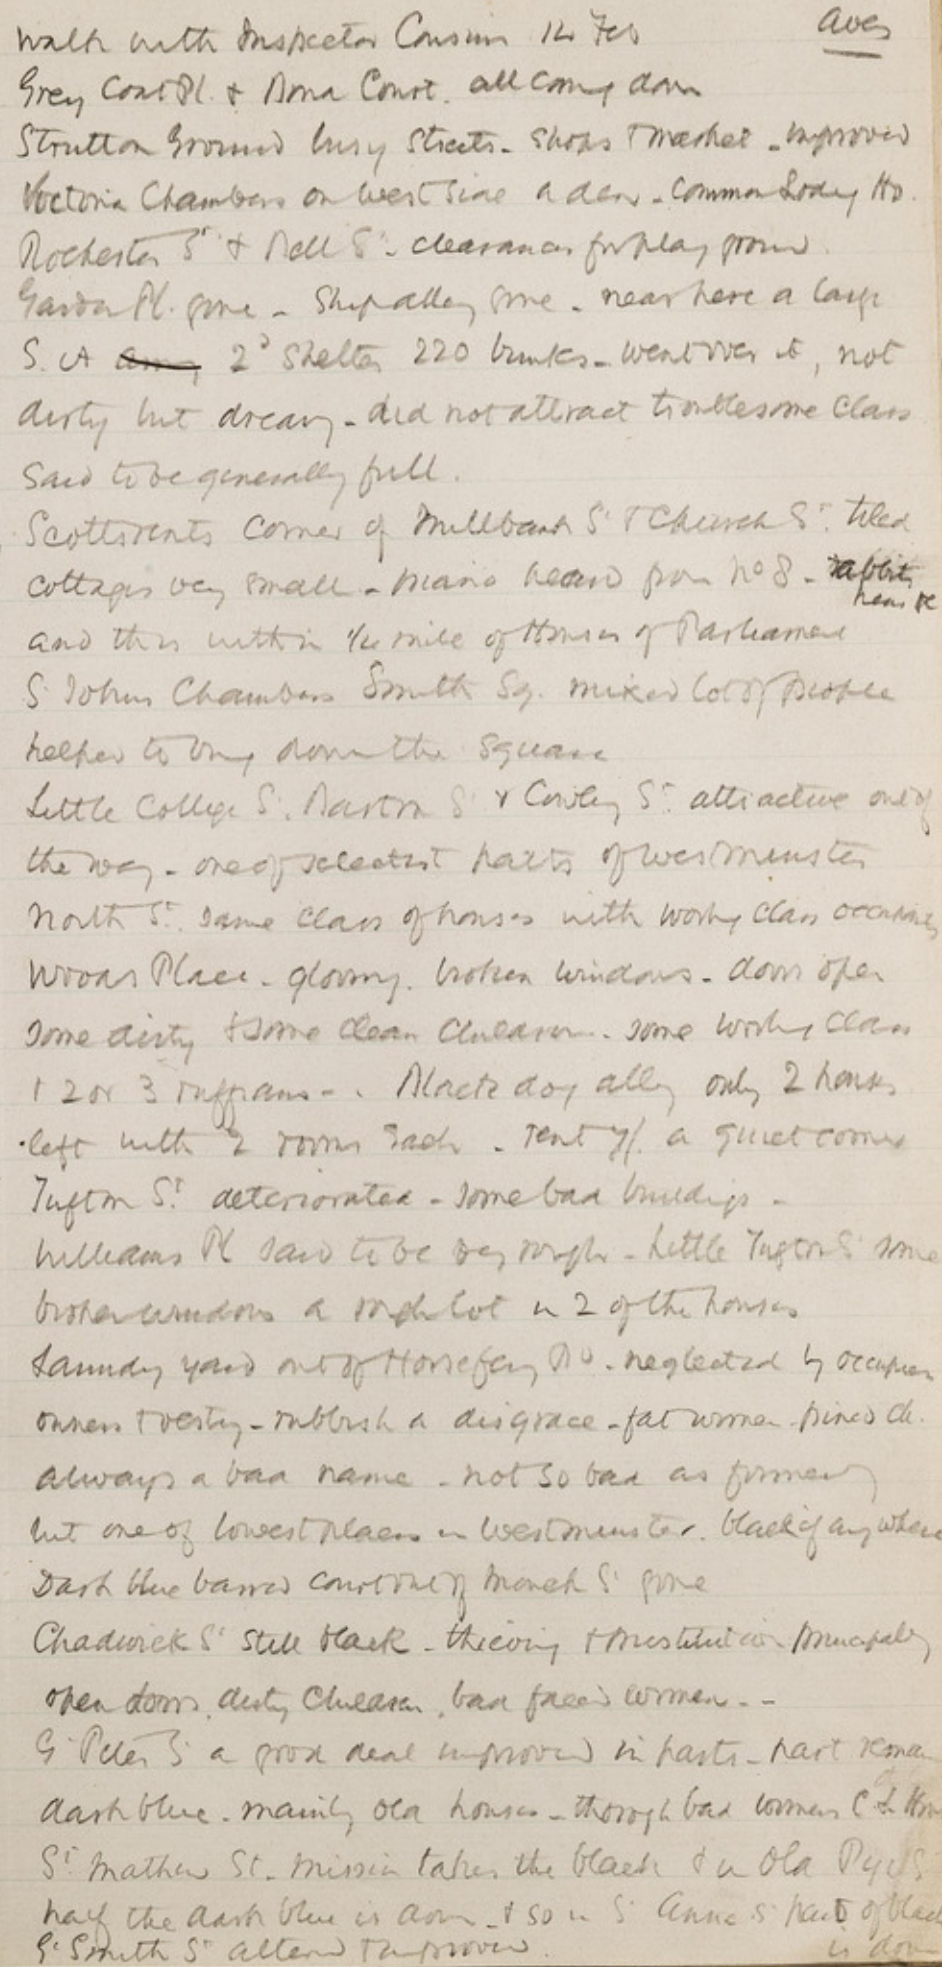 Walk with Inspector Cousins 14 Feb Aves
Grey Coat Pl. & Bond Court. all coming down
Strutton Ground busy Streets - Shops & market - improved
Victoria Chambers on West Side a dear - Common Lodg Ho.
Rochester St & Bell St - clearances for play ground.
Garden Pl. gone - Ship alley gone - near here a large
S. A 2d Shelter 220 bunks - went over it, not
dirty but dreary - did not attract troublesome class
Said to be generally full.
Scotts rents Corner of Millbank St & Church St. tiled
cottages very small - piano heard from No 8 - rabbits
near
and this within 1/4 mile of Houses of Parliament
St Johns Chambers Smith Sq. mixed lot of people
helped to bring down the Square
Little College St. Barton St & Cowley St attractive out of
the way - one of selectest parts of Westminster
North St. Same class of houses with working class occupiers
Woods Place - gloomy. broken windows - doors open
Some dirty & some clean children. some working class
& 2 or 3 ruffians - . Black dog alley only 2 houses
left with 2 rooms each - rent 7/. a quiet corner
Tufton St. deteriorated - some bad buildings -
Williams Pl said to be very rough - Little Tufton St some
broken windows a rough lot in 2 of the houses
Laundry yard out of Horseferry Rd - neglected by occupiers
owners & vestry - rubbish a disgrace - fat women
always a bad name - not so bad as formerly
but one of lowest places in Westminster. black if anywhere
Dark blue barred court out of Monck St gone
Chadwick St Still black - thieving & prostitution principally
open doors, dirty children, bad faced women - -
Gt Peter St a good deal improved in parts - part remains
dark blue - mainly old houses - through bad women C L Ho
St Mathew St. Mission takes the black & in Old Pye St
half the dark blue is down - & so in St Anne St part of black
is down
Gt Smith St altered & improved.